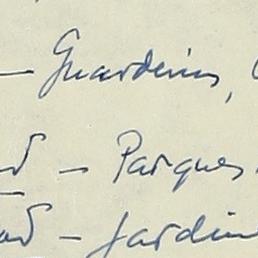 — Guarderías,
— Parques
— Jardin